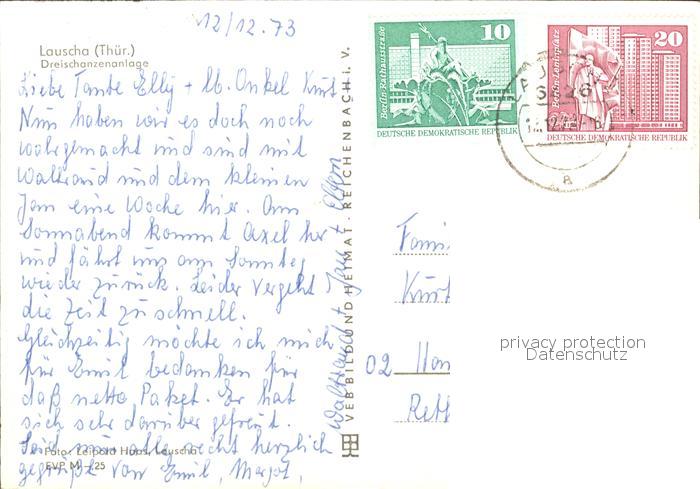 12/12.73
Lauscha (Thür.)
Dreischanzenanlage
Liebe Tante Elly + lb. Onkel Kurt
Nun haben wir es doch noch
wahrgemacht und sind mit
Waltraud und dem kleinen
Jan eine Woche hier. Am
Sonnabend kommt Axel her
und fährt uns am Sonntag
wieder zurück. Leider vergeht
die Zeit zu schnell.
Gleichzeitig möchte ich mich
für Emil bedanken für
daß nette Paket. Er hat
sich sehr darüber gefreut.
Seid nun alle recht herzlich
gegrüßt von Emil, Margot,
Waltraud + Jan + Eltern
Foto: Leipold Haas, Lauscha
EVP M -,25
VEB BILD UND HEIMAT · REICHENBACH i. V.
10
Berlin Rathausstraße
DEUTSCHE DEMOKRATISCHE REPUBLIK
20
Berlin-Leninplatz
DEUTSCHE DEMOKRATISCHE REPUBLIK
a
Fami
Kurt
02 Han
privacy protection
Datenschutz